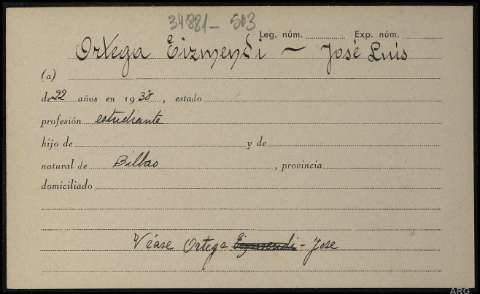 34881-503
Leg. núm. Exp. núm.
Ortega Eizmendi - José Luís
(a)
de 22 años en 1938, estado
profesión estudiante
hijo de y de
natural de Bilbao, provincia
domiciliado
Véase Ortega Eizmendi - Jose
ARG